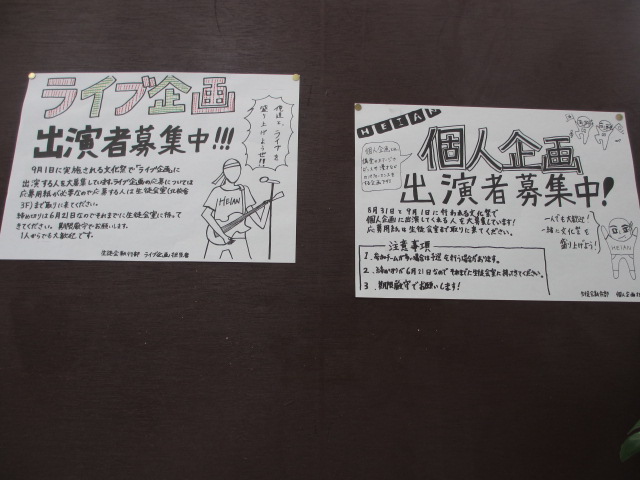 ライブ企画
出演者募集中!!!
9月1日に実施される文化祭で「ライブ企画」に
出演する人を大募集しています。ライブ企画の応募については
応募用紙が必要なので応募する人は生徒会室(北校舎
3F)まで取りに来てください。
締め切りは6月21日なのでそれまでに生徒会室に持って
きてください。期限厳守でお願いします。
1人からでも大歓迎です。
生徒会執行部 ライブ企画担当者
俺達と、ライブを
盛り上げようぜ!!
HEIAN
HEIAN
個人企画
出演者募集中!
個人企画とは、
8月31日と9月1日に行われる文化祭で
個人企画に出演してくれる人を大募集しています!
応募用紙は生徒会室まで取りに来てください。
注意事項
1. 参加チームが多い場合は予選を行う場合があります。
2. 締め切りが6月21日なのでそれまでに生徒会室に持ってきてください。
3. 期限厳守でお願いします!
一人でも大歓迎!
一緒に文化祭を
盛り上げよう!
HEIAN
生徒会執行部 個人企画